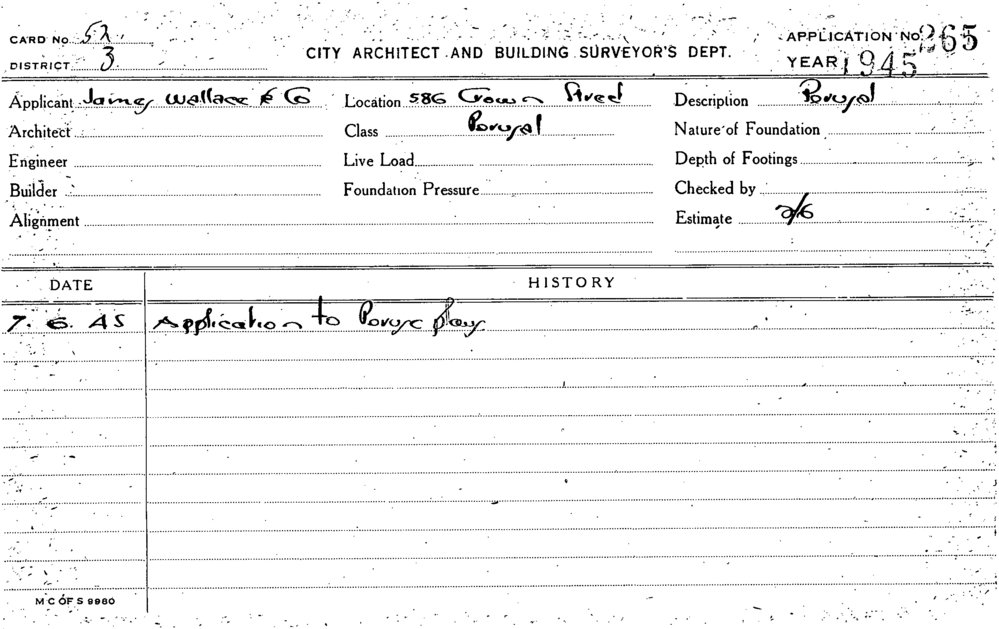 CARD No 52. CITY ARCHITECT AND BUILDING SURVEYOR'S DEPT. APPLICATION No. 265
DISTRICT 3 YEAR 1945
Applicant James Wallace & Co Location 586 Crown Street Description Perusal
Architect Class Perusal Nature of Foundation
Engineer Live Load Depth of Footings
Builder Foundation Pressure Checked by
Alignment Estimate 2/6
DATE HISTORY
7. 6. 45 Application to Peruse plans
M C OF S 9960